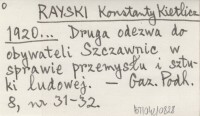 RAYSKI Konstanty Kietlicz
1920... Druga odezwa do
obywateli Szczawnic w
sprawie przemysłu i sztu-
ki ludowej. — Gaz. Podh.
8, nr 31-32.